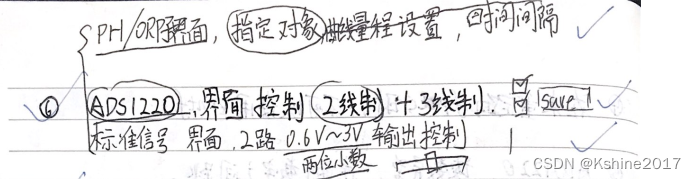 PH/ORP界面，指定对象曲线量程设置，时间间隔
⑥ ADS1220，界面控制 2线制 + 3线制. save
标准信号 界面，2路 0.6V~3V 输出控制
两位小数
CSDN @Kshine2017